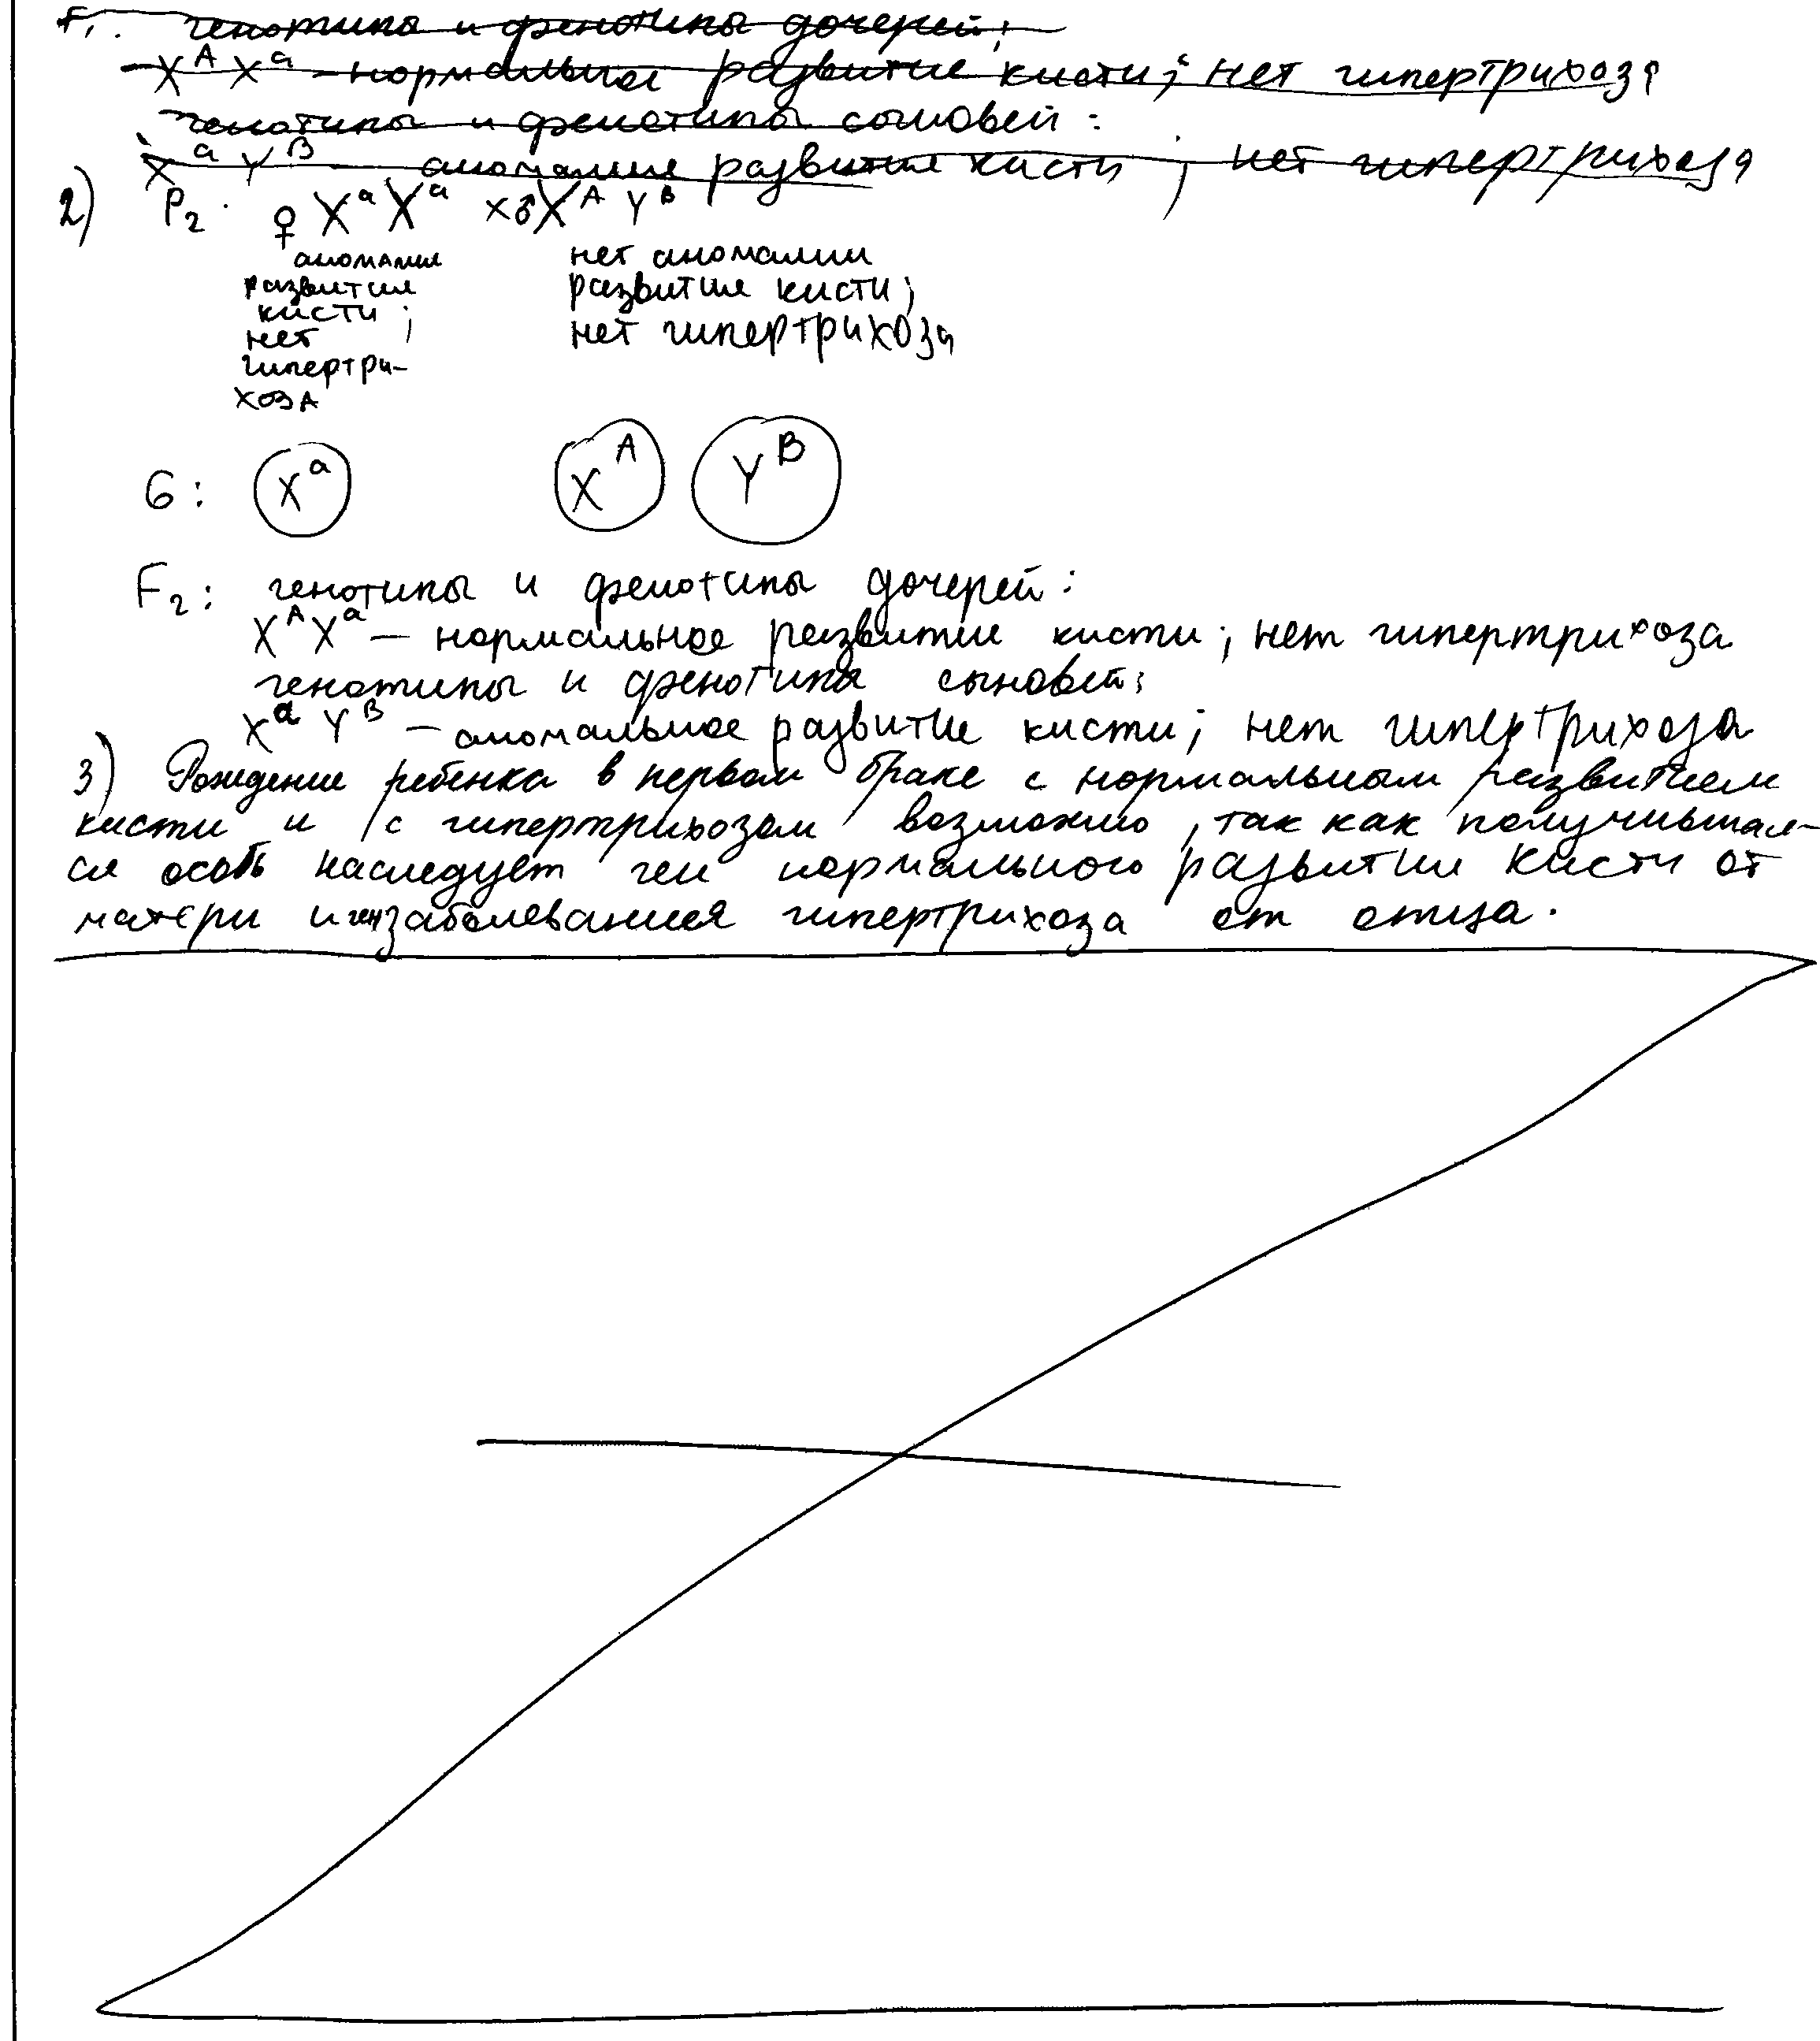 F₁: генотипы и фенотипы дочерей:
X^A X^a – нормальное развитие кисти; нет гипертрихоза
генотипы и фенотипы сыновей:
X^a Y^B – аномалия развития кисти; нет гипертрихоза
2) P₂. ♀ X^a X^a × ♂ X^A Y^B
аномалия нет аномалии
развития развития кисти;
кисти; нет гипертрихоза
нет
гипертри-
хоза
G: X^a X^A Y^B
F₂: генотипы и фенотипы дочерей:
X^A X^a – нормальное развитие кисти; нет гипертрихоза
генотипы и фенотипы сыновей:
X^a Y^B – аномальное развитие кисти; нет гипертрихоза
3) Рождение ребенка в первом браке с нормальным развитием
кисти и с гипертрихозом возможно, так как получившая-
ся особь наследует ген нормального развития кисти от
матери и ген заболевания гипертрихоза от отца.